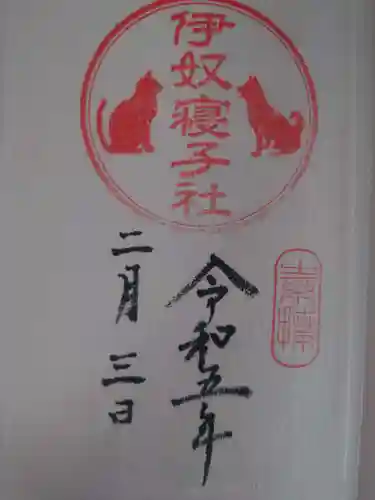 伊奴寝子社
令和五年
二月三日